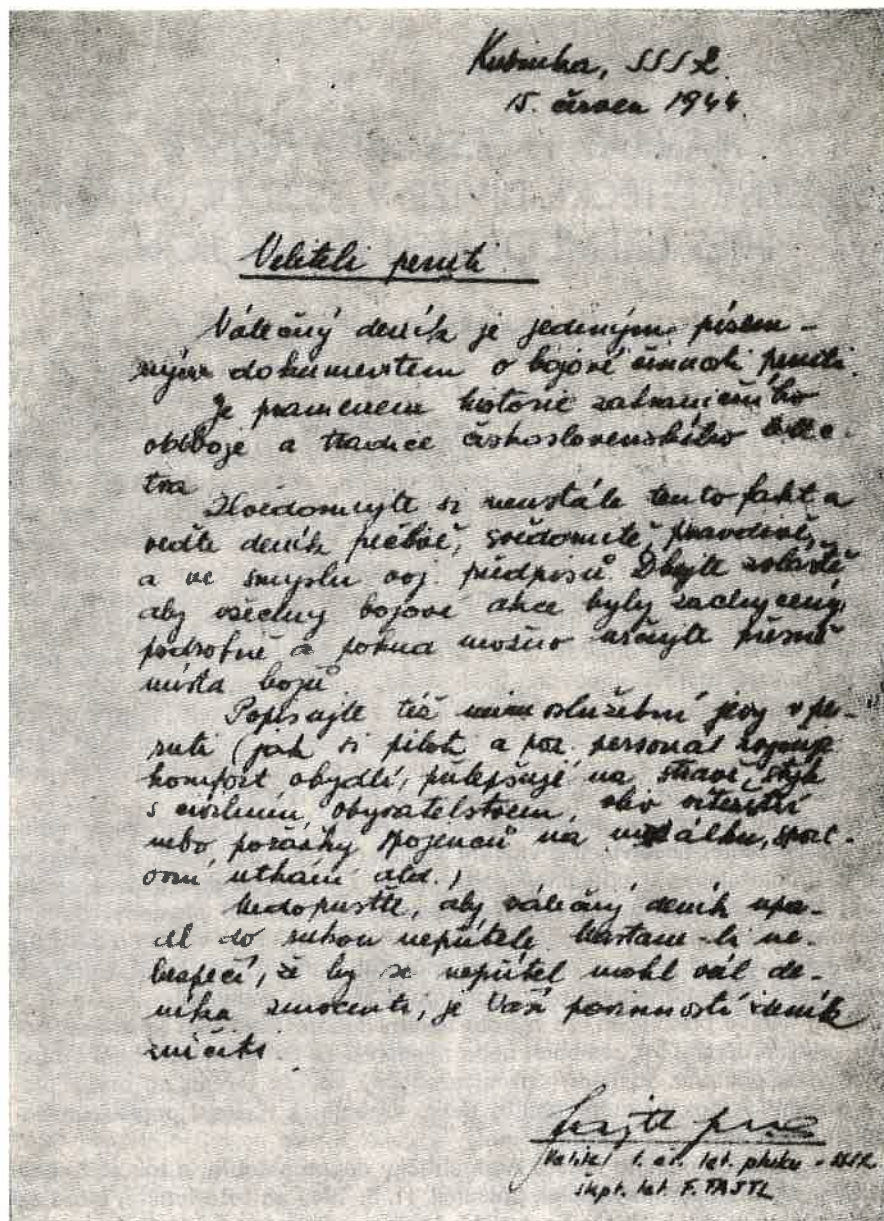 Kubinka, SSSR.
15. červen 1944.
Veliteli peruti.
Válečný deník je jediným písem-
ným dokumentem o bojové činnosti peruti.
Je pramenem historie zahraničního
odboje a tradice československého letec-
tva
Uvědomujte si neustále tento fakt a
veďte deník pečlivě, svědomitě, pravdivě,
a ve smyslu voj. předpisů. Dbejte zvláště
aby všechny bojové akce byly zachyceny
podrobně a pokud možno určujte přesně
místa bojů
Popisujte též mimoslužební jevy v pe-
ruti (jak si piloti a poz. personál
komfort obydlí, přilepšují na stravě, styk
s civilním obyvatelstvem, vliv vítězství
nebo porážky spojenců na náladu, sport-
ovní utkání atd.)
Nedopusťte, aby válečný deník upa-
dl do rukou nepřítele. Nastane-li ne-
bezpečí, že by se nepřítel mohl vál. de-
níku zmocniti, je Vaší povinností deník
zničiti.
Velitel 1. čs. let. pluku - SSSR
škpt. let. F. FAJTL